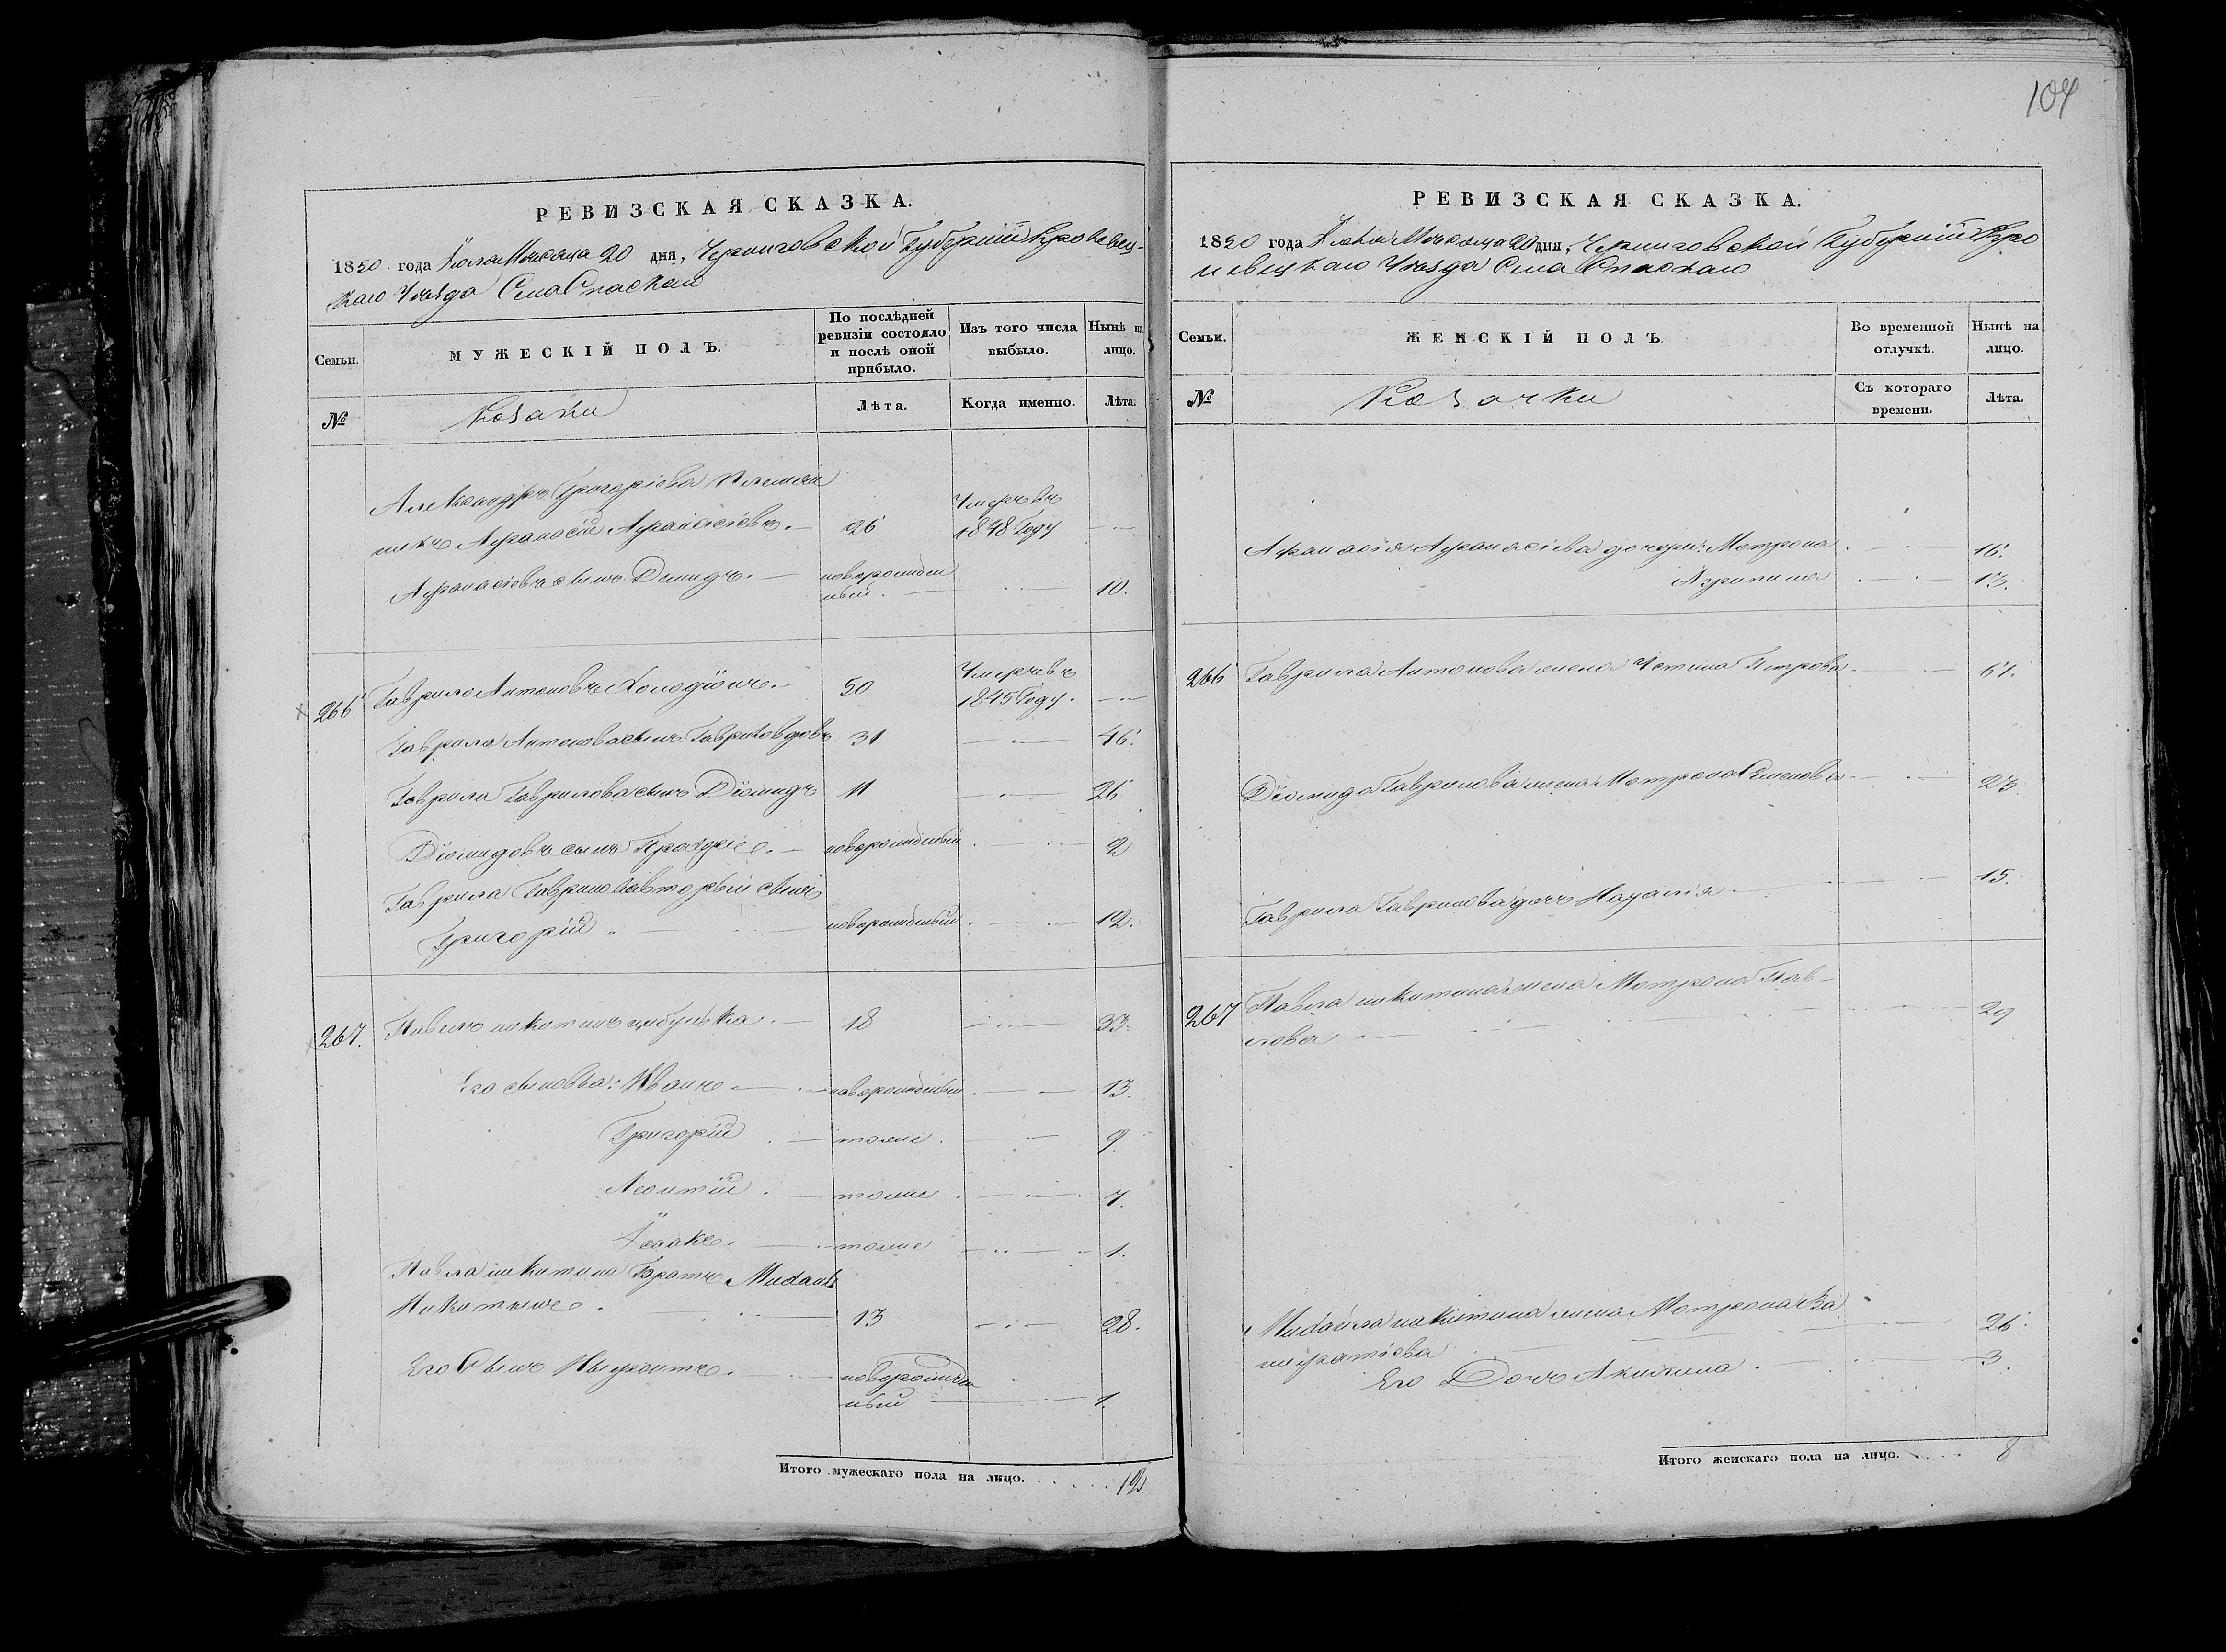 104
РЕВИЗСКАЯ СКАЗКА.
1850 года Июля Месяца 20 дня, Черниговской Губерніи Кролевец-
каго Уѣзда Села Спаскаго
Семьи.
МУЖЕСКІЙ ПОЛЪ.
По послѣдней ревизіи состояло и послѣ оной прибыло.
Изъ того числа выбыло.
Нынѣ на лицо.
№
Козаки
Лѣта.
Когда именно.
Лѣта.
Александръ Григоріева племян
никъ Афанасій Афанасіевъ 26 Умеръ въ 1848 Году
Афанасіевъ сынъ Демидъ новорожден ный 10.
266 Гаврило Антоновъ 50 Умеръ въ 1845 Году.
Гаврила Антонова сынъ Гаврило вдовъ 31 46.
Гаврила Гаврилова сынъ Діомидъ 11 26
Діомидовъ сынъ новорожденный 2.
Гаврила Гаврилова вторый сынъ
Григорій новорожденный 12.
267. Павелъ никитинъ цыбулька 18 33.
Его сыновья: Иванъ новорожденный 13.
Григорій тоже 9.
Леонтій тоже 7.
Ісаакъ тоже 1.
Павла никитина Братъ Михаилъ
Никитинъ 13 28.
Его Сынъ новорожден
ный 1.
Итого мужескаго пола на лицо. 12
РЕВИЗСКАЯ СКАЗКА.
1850 года Июля Месяца 20 дня, Черниговской Губерніи Кро
левецкаго Уѣзда Села Спаскаго
Семьи.
ЖЕНСКІЙ ПОЛЪ.
Во временной отлучкѣ.
Нынѣ на лицо.
№
Козачки
Съ котораго времени.
Лѣта.
Афанасія Афанасіева дочери: Мотрона 16.
Агрипина 13.
266 Гаврила Антонова жена Устина Петрова 61.
Діомида Гаврилова жена Мотрона Семенова 23.
Гаврила Гаврилова дочь Наталія 15.
267 Павла никитина жена Мотрона Пав-
лова 29
Михаила никитина жена Мотрона 26.
Его Дочь Акилина 3.
Итого женскаго пола на лицо. 8